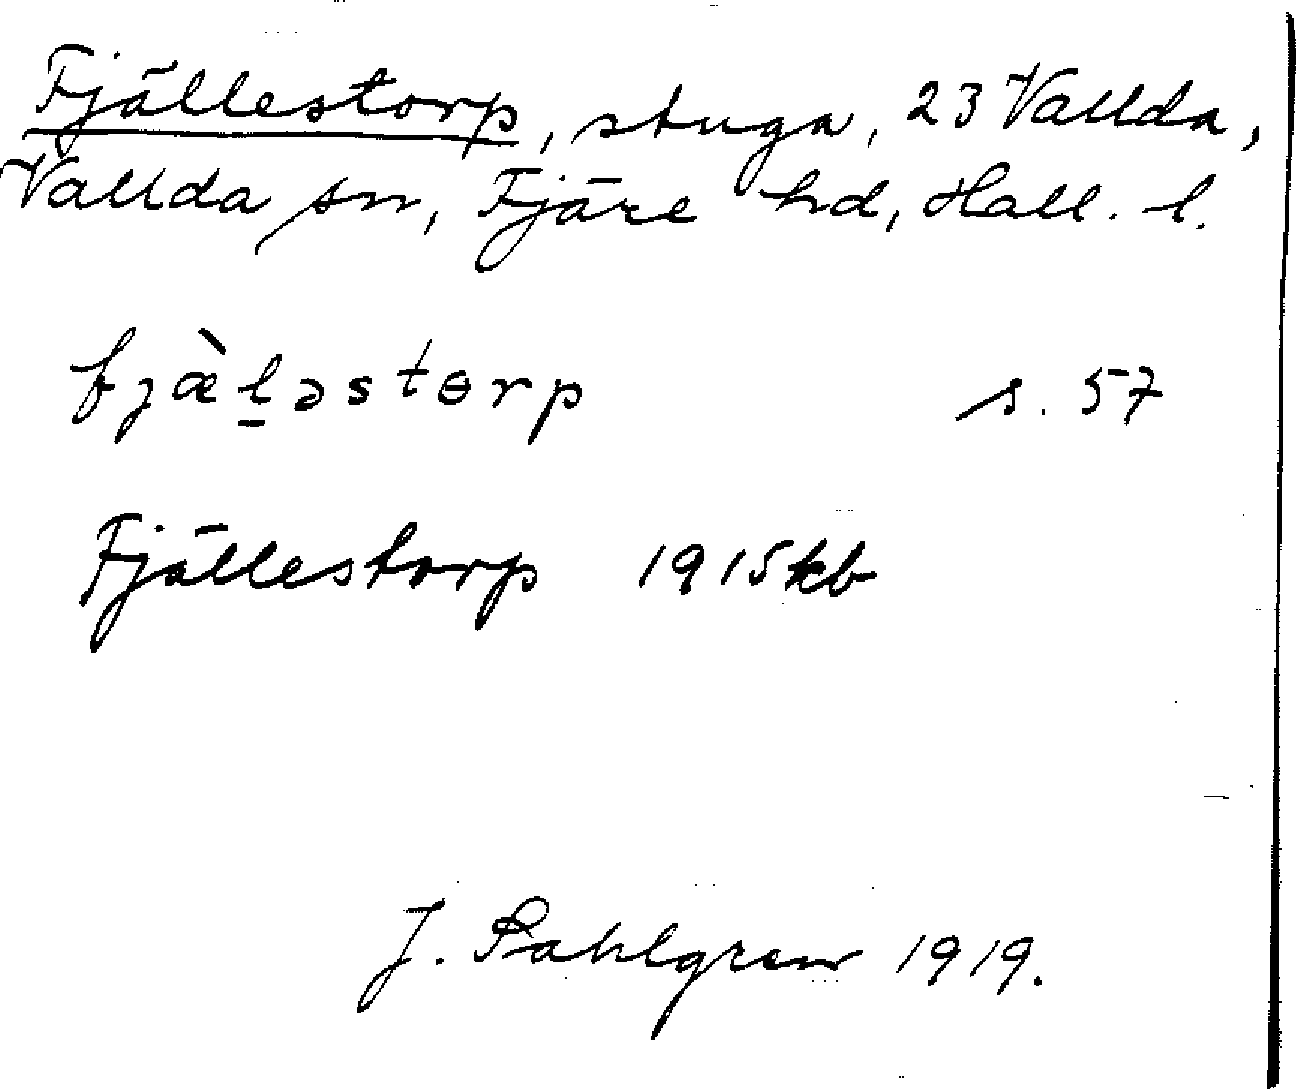 Fjällestorp, stuga, 23 Vallda,
Vallda sn, Fjäre hd, Hall. l.
fjæ̀l̠əstɵrp s. 57
Fjällestorp 1915 kb
J. Sahlgren 1919.